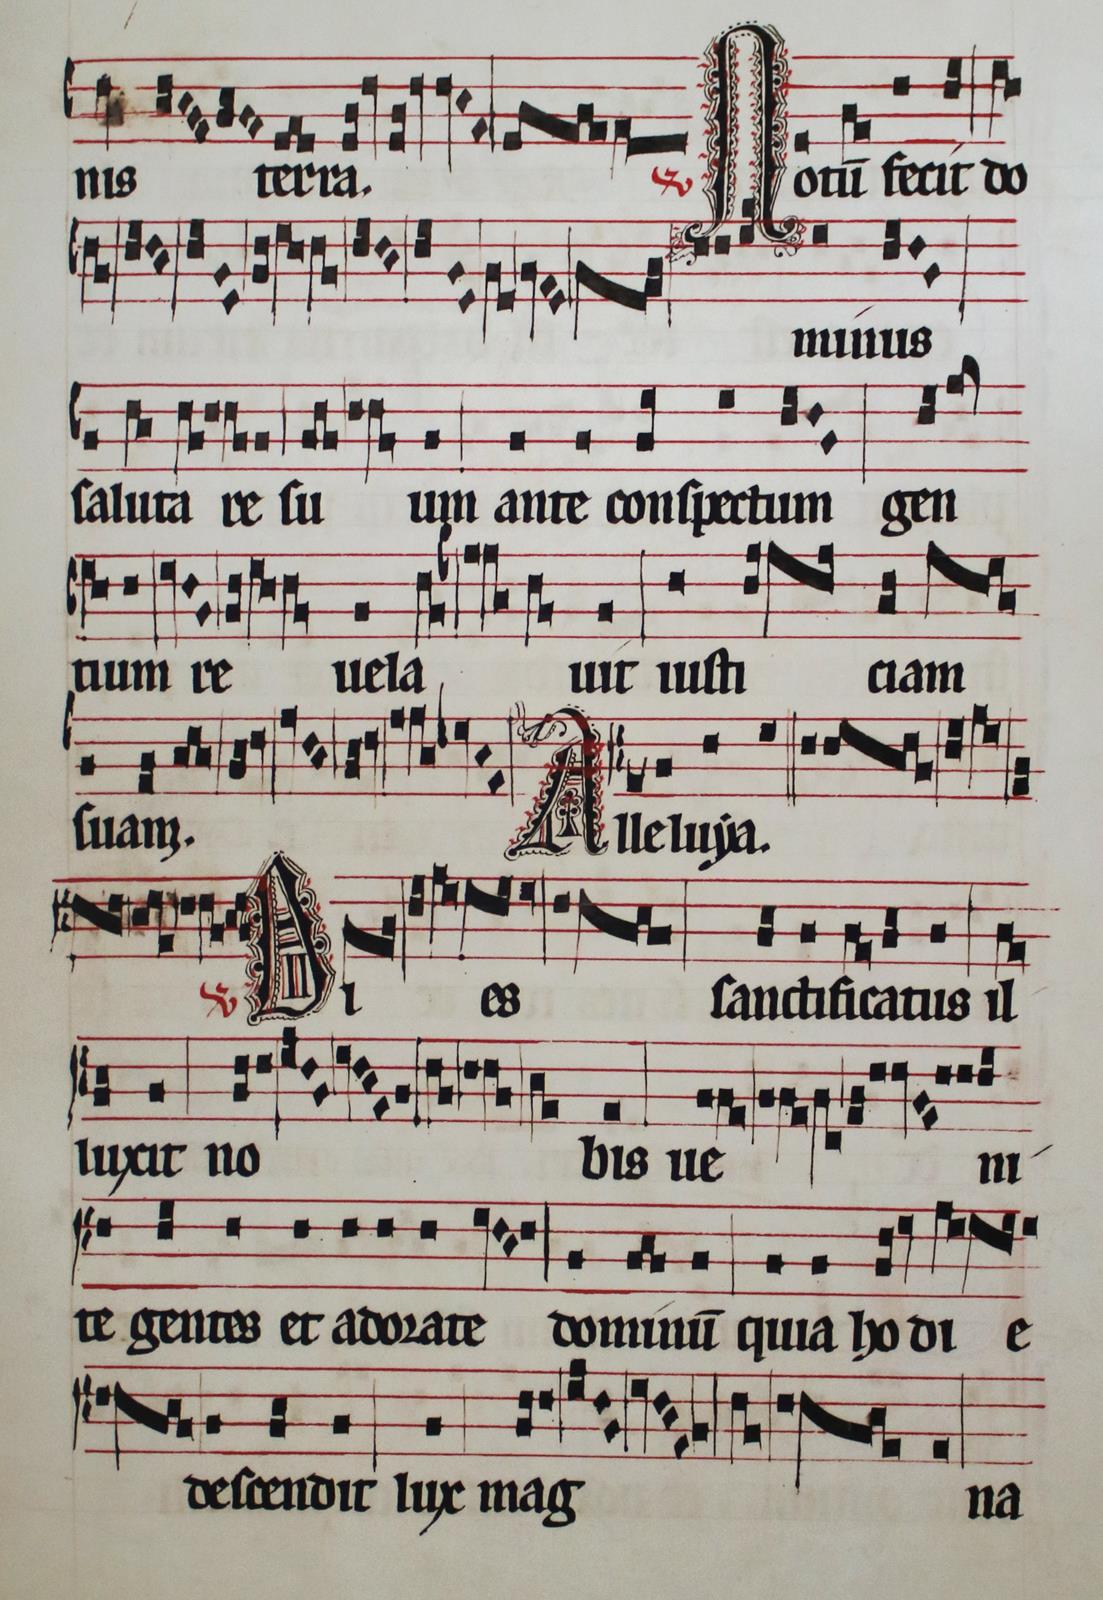 nis terra. ℣ Notū fecit do
minus
saluta re su um ante conspectum gen
tium re uela uit iusti ciam
suam. Alleluya.
℣ Dies sanctificatus il
luxit no bis ue ni
te gentes et adorate dominū quia ho di e
descendit lux mag na